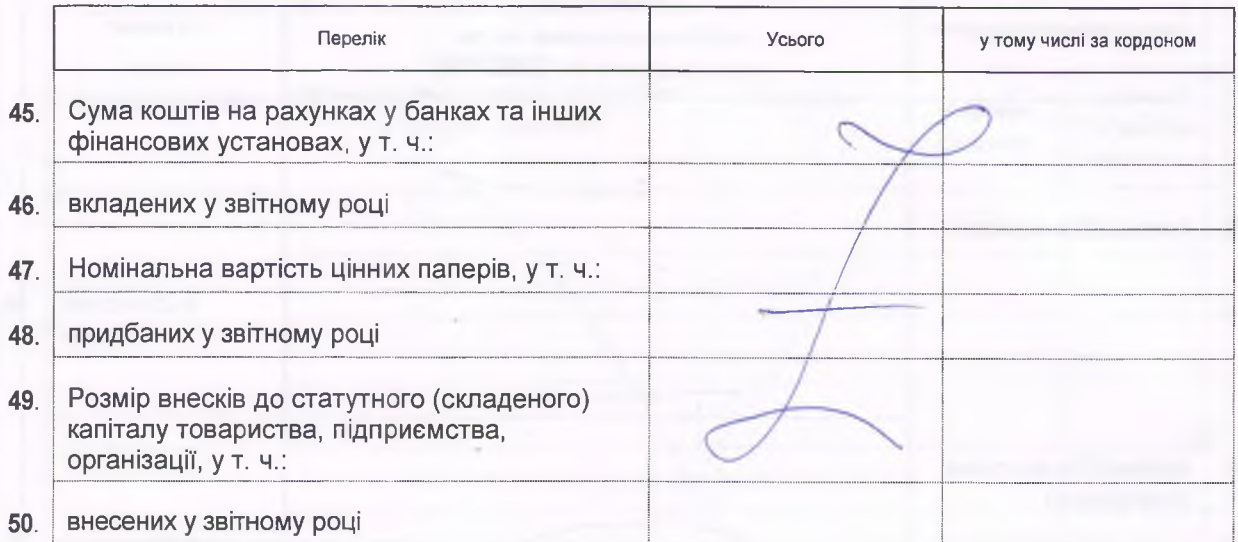 Перелік Усього у тому числі за кордоном
45. Сума коштів на рахунках у банках та інших
фінансових установах, у т. ч.:
46. вкладених у звітному році
47. Номінальна вартість цінних паперів, у т. ч.:
48. придбаних у звітному році
49. Розмір внесків до статутного (складеного)
капіталу товариства, підприємства,
організації, у т. ч.:
50. внесених у звітному році